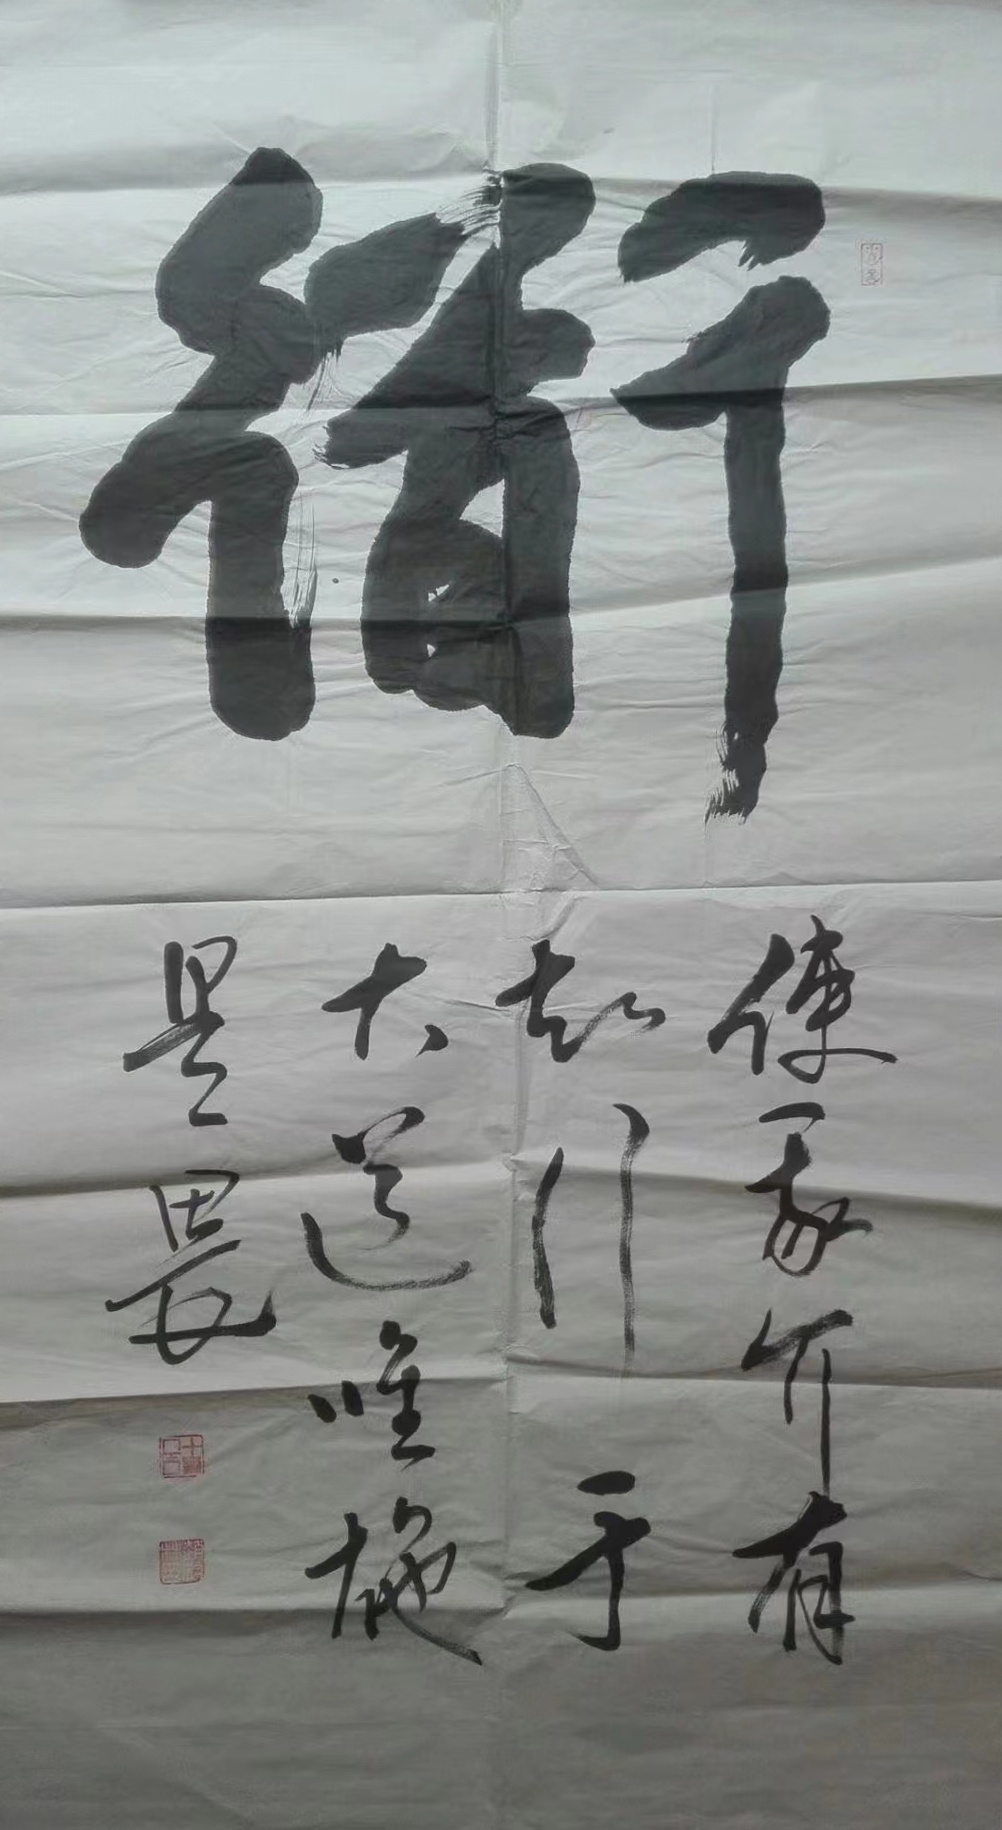 衜
使我介有
知行于
大道唯施
是畏